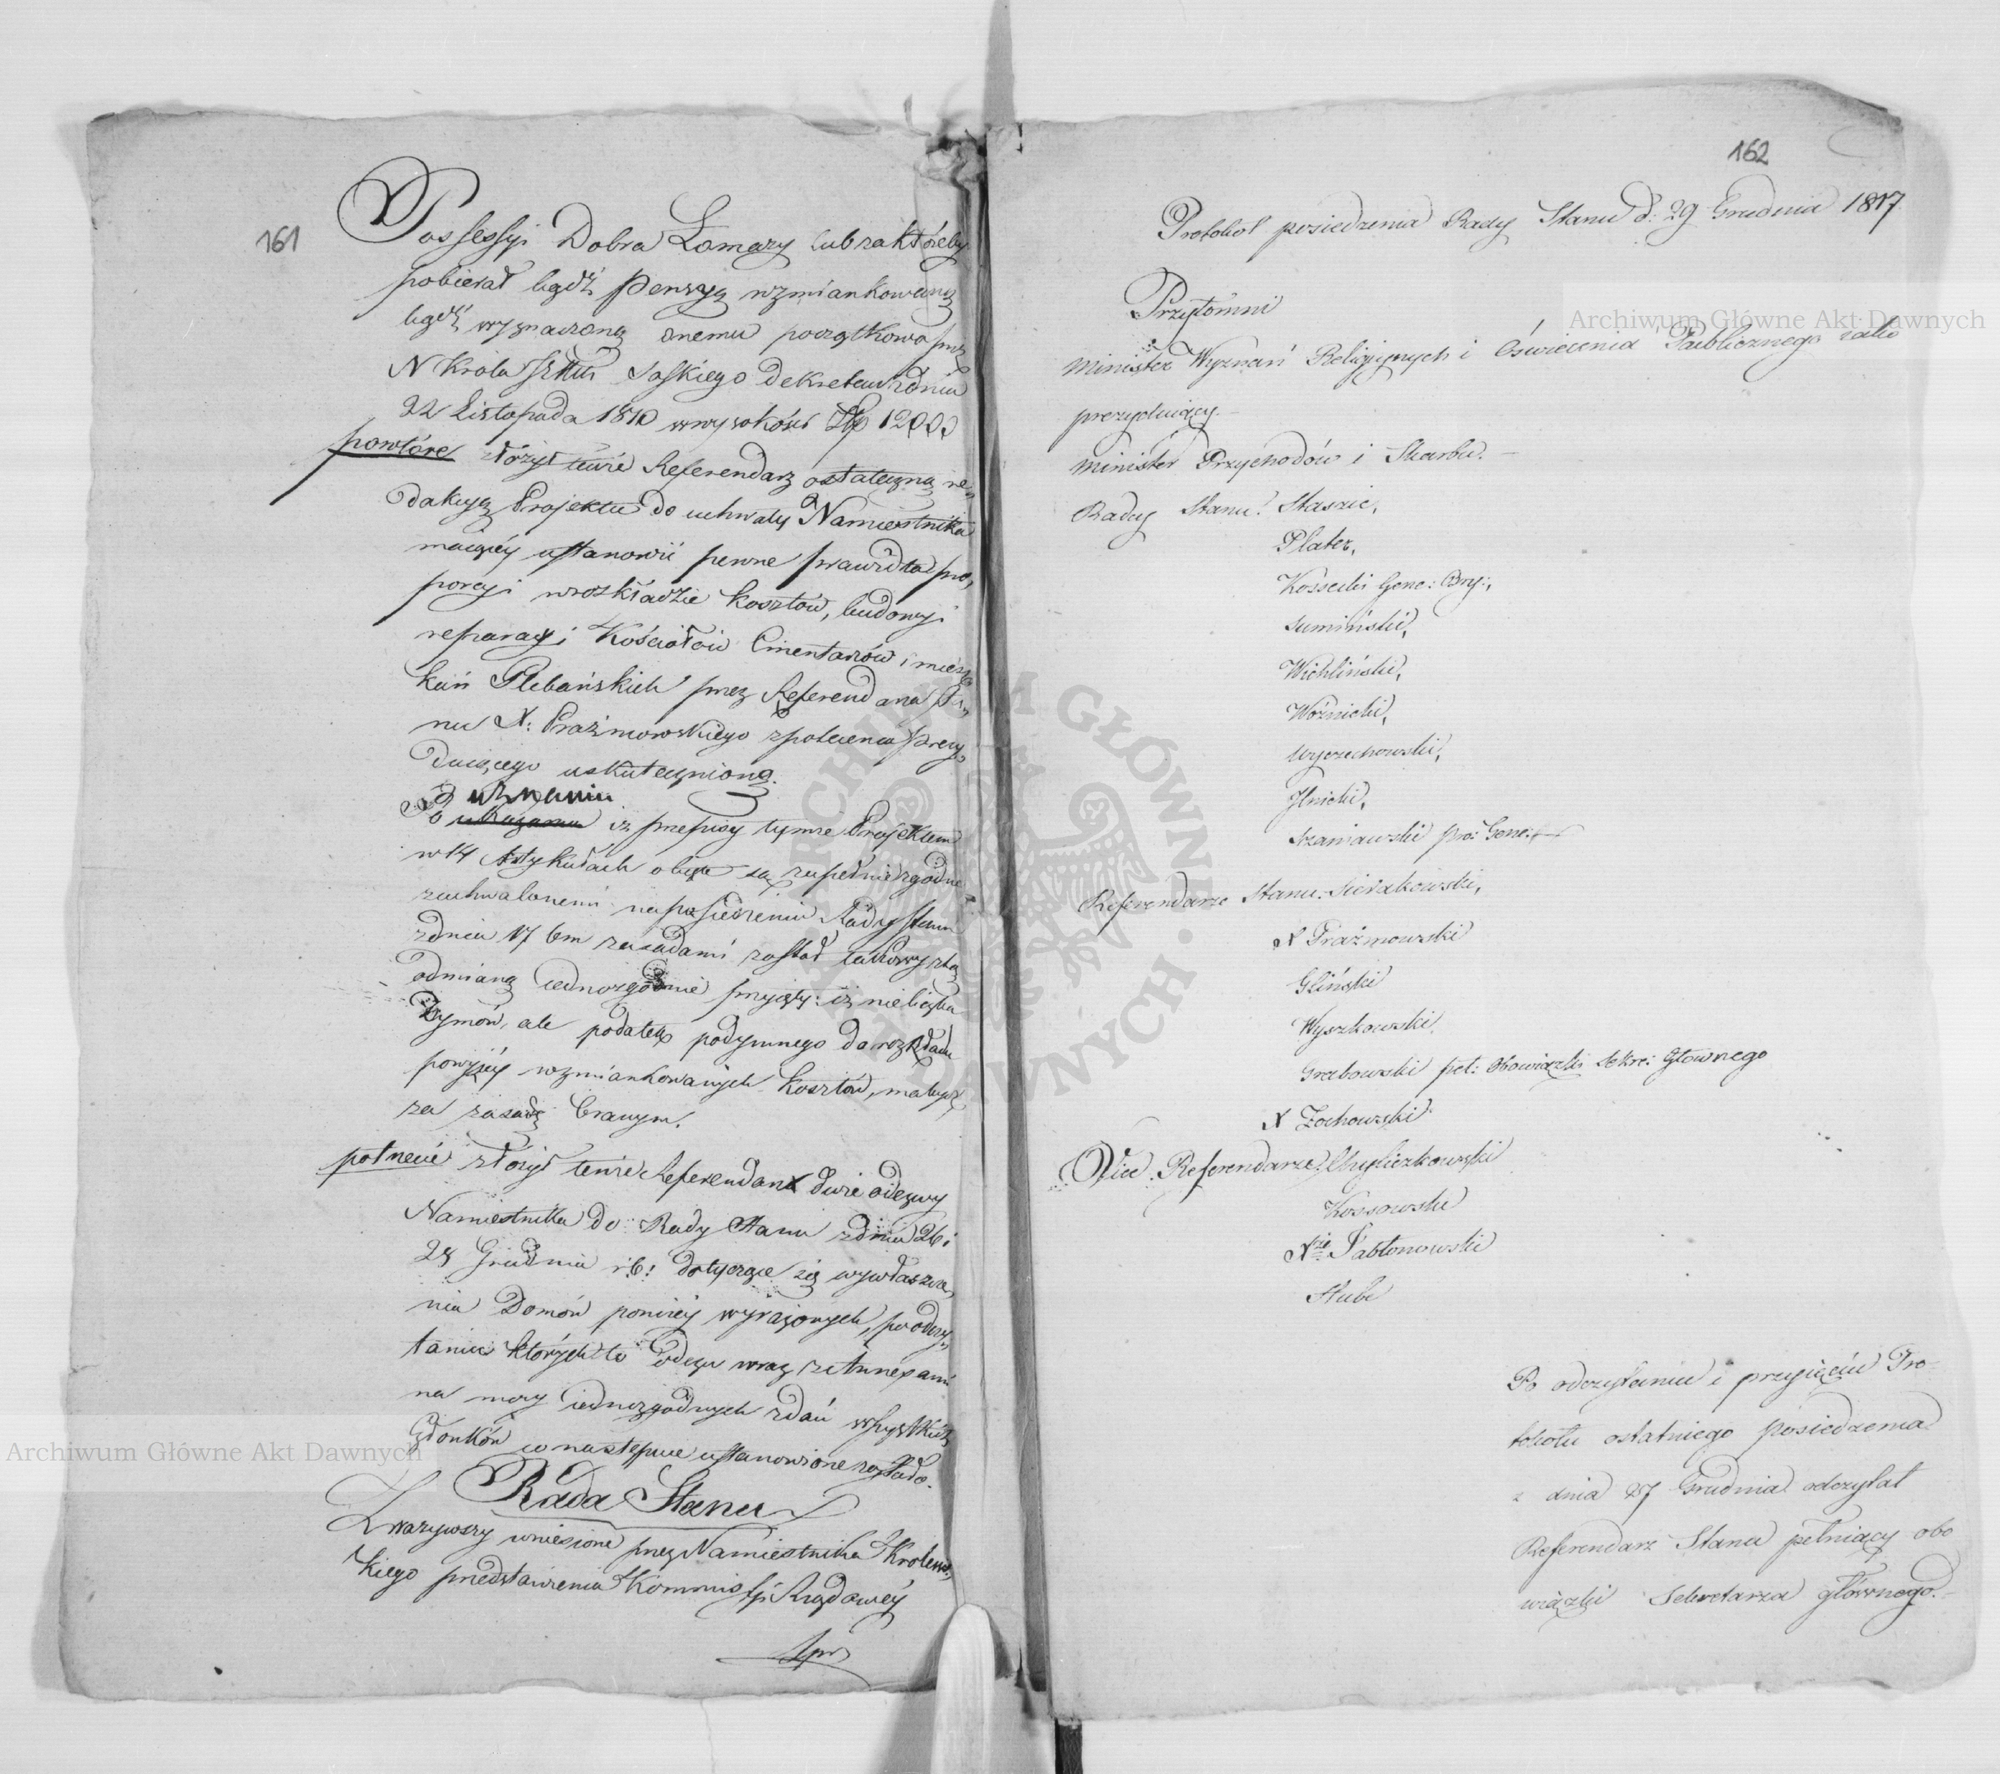 161
Possessyi Dobra Łomazy lub za któreby
pobierał bądź Pensyą wzmiankowaną
bądź wyznaczoną onemu początkowo przez
N Króla Saskiego dekretem zdnia
22 Listopada 1810 w wysokości Złp 12000
powtóre złożył tenże Referendarz ostateczną re-
dakcyą Projektu do uchwały Namiestnika
maiącéy ustanowić pewne prawidła pro-
porcyi w rozkładzie kosztów, budowy i
reparacyi Kościołów Cmentarzów i miesz-
kań Plebańskich przez Referendarza Sta-
nu X: Prażmowskiego z polecenia Prezy-
duiącego uskutecznioną.
uznaniu
Po iż przepisy tymże Projektem
w 14 Artykułach obięte są zupełnie zgodne
z uchwalonemi na posiedzeniu Rady Stanu
zdnia 17 bm zasadami został takowy z tą
odmianą iednozgodnie przyięty: iż nie liczba
Dymów, ale podatek podymnego do rozkładu
powyżéy wzmiankowanych kosztów, ma być
za zasadę branym.
potrzecie złożył tenże Referendarz dwie odezwy
Namiestnika do Rady Stanu z dnia 26 i
28 Grudnia r.b: dotyczące się wywłaszcze-
nia Domów poniżéy wyrażonych, po odczy-
taniu których to Odezw wraz z Annexami
na mocy iednozgodnych zdań wszystkich
Członków co następuie ustanowione zostało.
Rada Stanu
Zważywszy wniesione przez Namiestnika Królews-
kiego przedstawienia Kommissyi Rządowéy
162
Protokół posiedzenia Rady Stanu d: 29 Grudnia 1817.
Przytomni
Minister Wyznań Religijnych i Oświecenia Publicznego iako
prezyduiący.
Minister Przychodów i Skarbu.
Radcy Stanu: Staszic,
Plater,
Kossecki Gene: Bry:,
Sumiński,
Wichliński,
Woźnicki,
Wyczechowski,
Ilnicki,
Szaniawski pro: Gene:
Referendarze Stanu: Sierakowski,
X Prażmowski
Gliński
Wyszkowski,
Grabowski peł: obowiązki Sekre: Głównego
X Zochowski
Vice Referendarze, Chyliczkowski
Kossowski
Xże Jabłonowski
Stube
Po odczytaniu i przyięciu Pro-
tokółu ostatniego posiedzenia
z dnia 27 Grudnia odczytał
Referendarz Stanu pełniący obo
wiązki Sekretarza głównego.
Archiwum Główne Akt Dawnych
Archiwum Główne Akt Dawnych